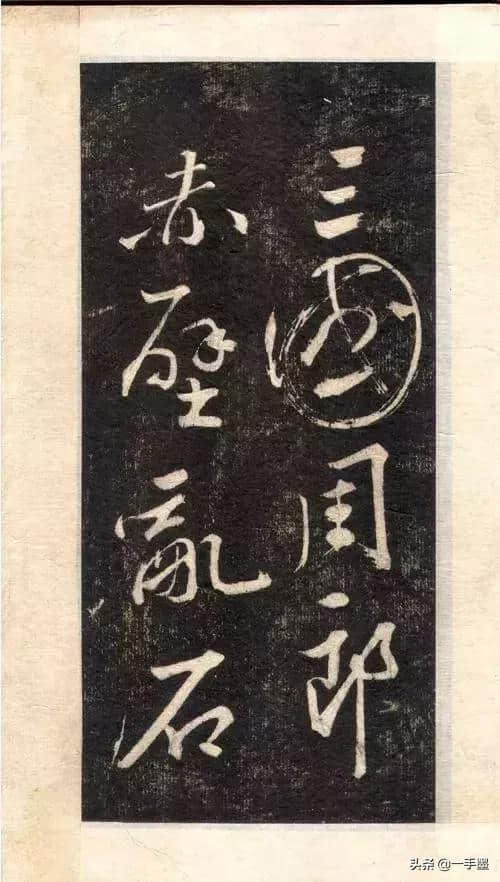 三國周郎
赤壁亂石
头条@一手墨